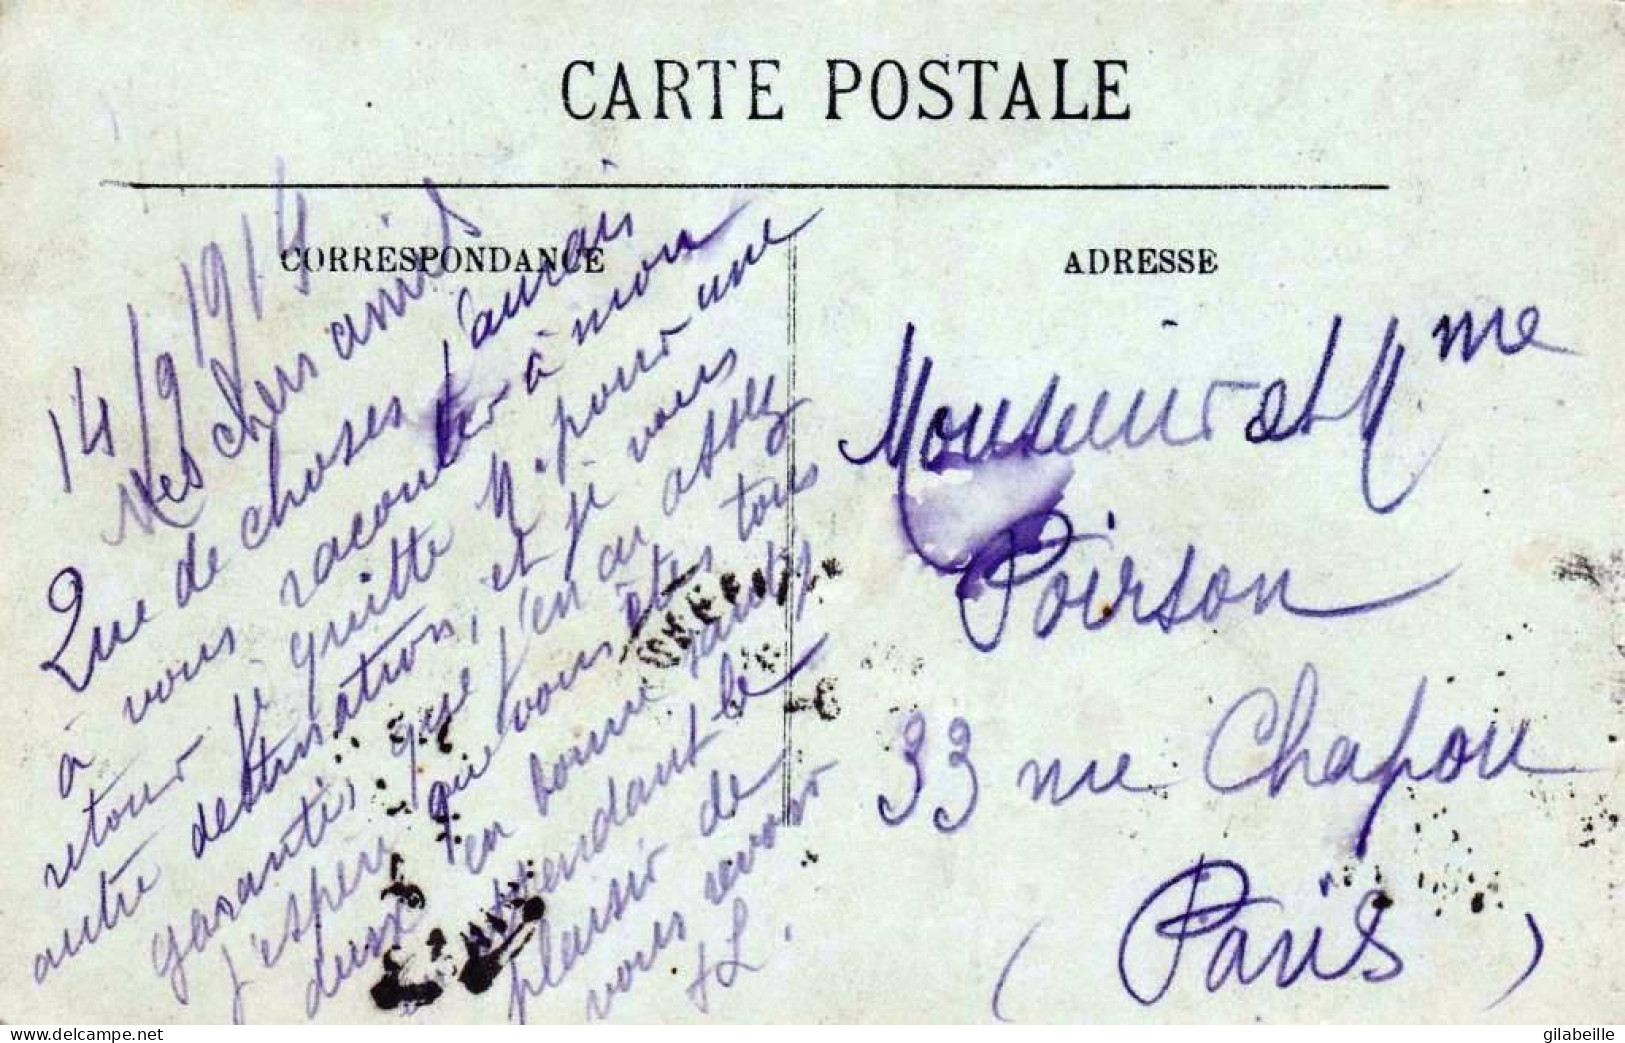 CARTE POSTALE
CORRESPONDANCE
ADRESSE
14/9/1914
Mes chers amis
Que de choses j'aurais
à vous raconter à mon
retour je quitte N. pour une
autre destination, et je vous
garantis que j'en ai assez
j'espère que vous êtes tous
deux en bonne santé
en attendant le
plaisir de
vous revoir
L.
Monsieur et Mme
Poirson
33 rue Chapon
(Paris)
gilabeille